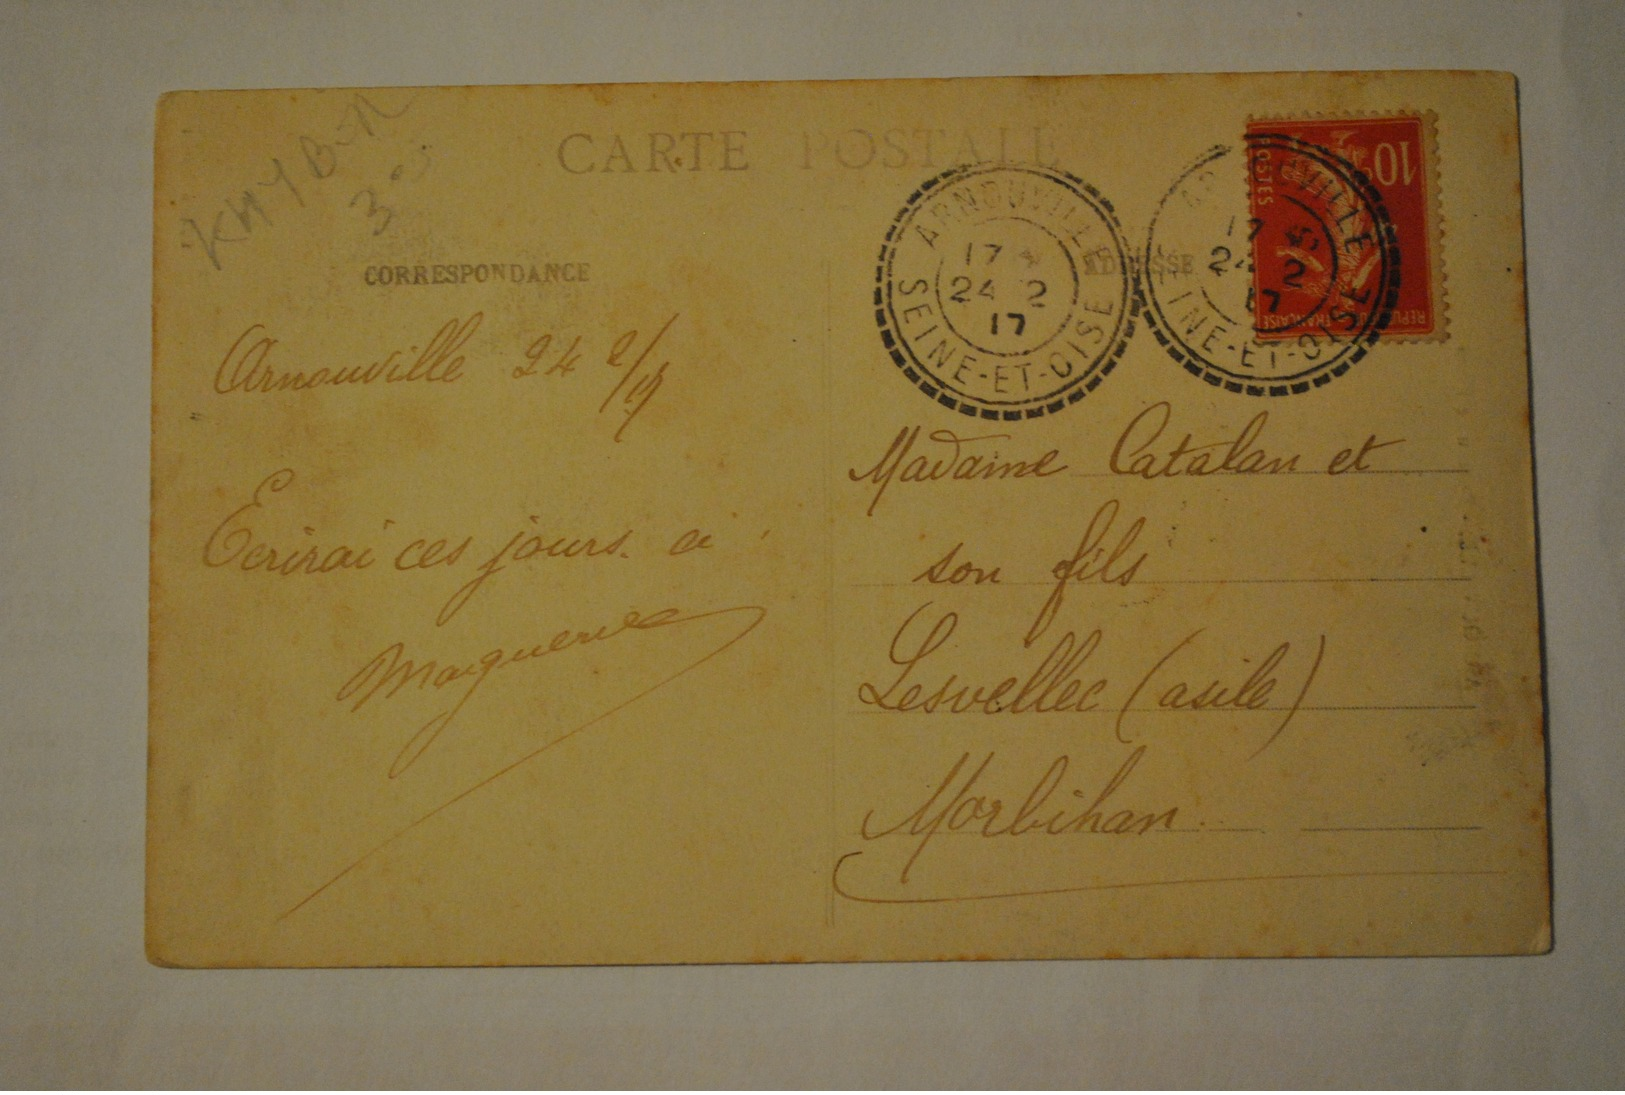 CARTE POSTALE
CORRESPONDANCE
ADRESSE
ARNOUVILLE
17
24 2
17
SEINE-ET-OISE
ARNOUVILLE
17
24 2
17
SEINE-ET-OISE
10
POSTES
REPUBLIQUE FRANÇAISE
Arnouville 24 2/17
Ecrirai ces jours. ci
Marguerite
Madame Catalan et
son fils
Lesvellec (asile)
Morbihan